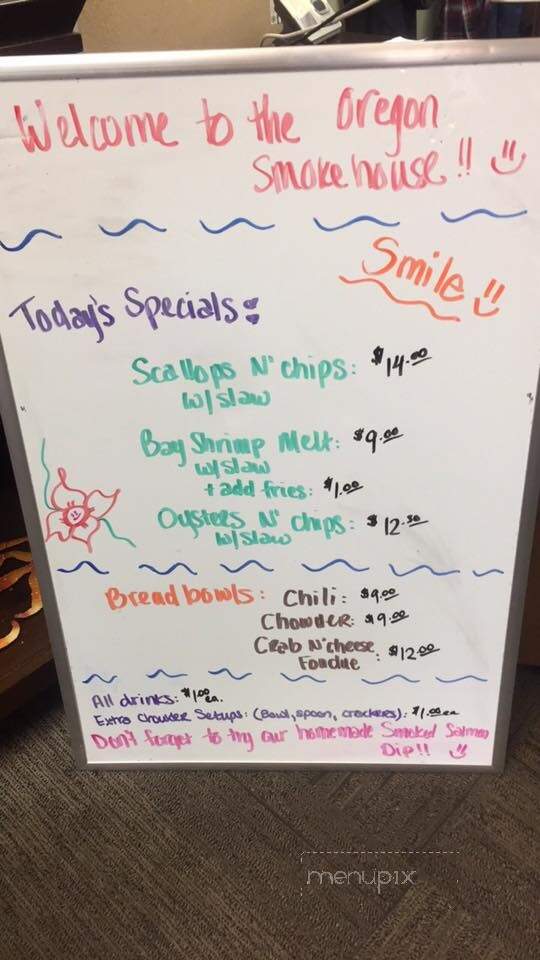 Welcome to the Oregon
Smokehouse!!
Smile
Today's Specials:
Scallops N' chips: $14.00
w/slaw
Bay Shrimp Melt: $9.00
w/slaw
+ add fries: $1.00
Oysters N' chips: $12.50
w/slaw
Bread bowls: Chili: $9.00
Chowder: $9.00
Crab N' cheese
Fondue : $12.00
All drinks: $1.00 ea.
Extra Chowder Setups: (Bowl, spoon, crackers): $1.00 ea
Don't forget to try our homemade Smoked Salmon
Dip!!
menupix